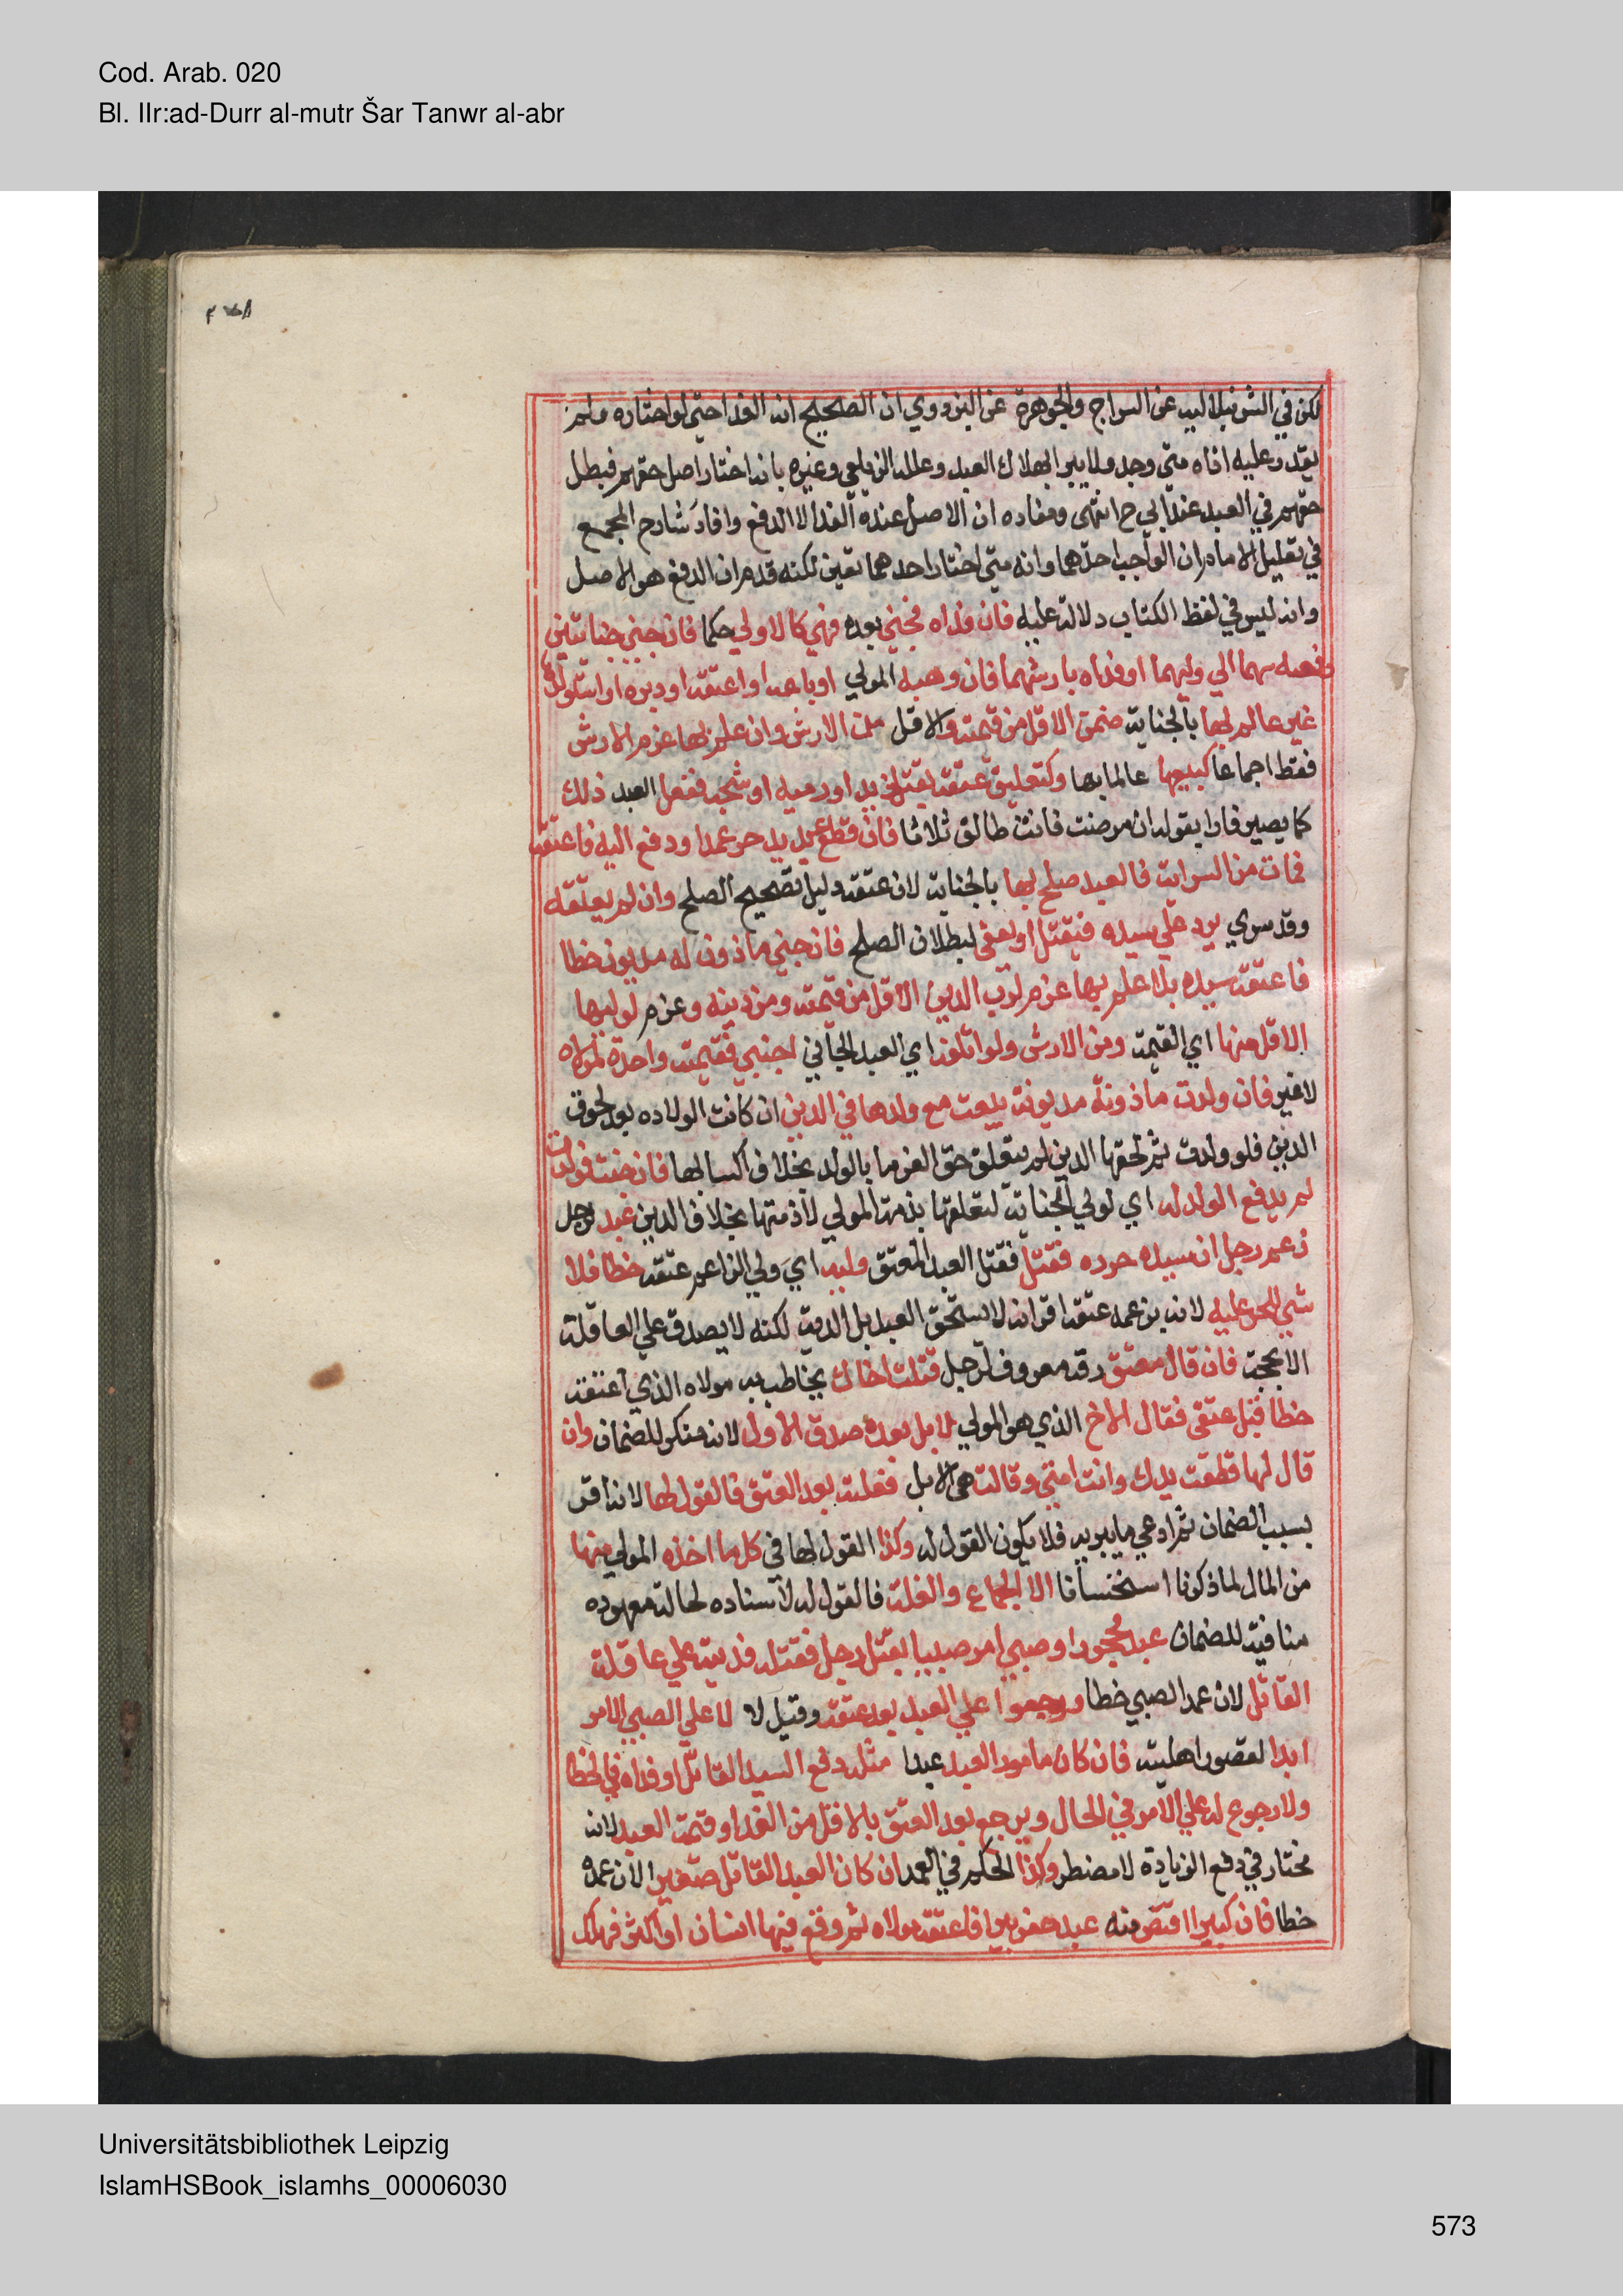 Cod. Arab. 020
Bl. IIr:ad-Durr al-mutr Šar Tanwr al-abr
لكن في الشرنبلالية عن السراج والجوهرة عن البزدوي ان الصحيح انه الفدا حتى لو اختاره ولم
يقدر عليه اداه متى وجد ولا يبرا بهلاك العبد وعلله الزيلعي وغيره بانه اختار اصل حقهم فبطل
حقهم في العبد عند ابي ح انتهى ومفاده ان الاصل عنده الفدا لا الدفع وافاد شارح المجمع
في تعليل الامام ان الواجب احدهما وانه متى اختار احدهما تعين لكنه قدم ان الدفع هو الاصل
وانه ليس في لفظ الكتاب دلالة عليه فان فداه فجني بعده فهي كالاولي حكما فان جني جنايتين
دفعه بهما الي وليهما او فداه بارشهما فان وهبه المولي او باعه او اعتقه او دبره او استولدها
غير عالم بها بالجناية ضمن الاقل من قيمته والاقل من الارش وان علم بها غرم الارش
فقط اجماعا كبيعها عالما بها وكتعليق عتقه بقتل زيد او رميه او شجه ففعل العبد ذلك
كما يصير فارا بقوله ان مرضت فانت طالق ثلاثا فان قطع عبد يد حر عمدا ودفع اليه فاعتقه
فمات من السراية فالعبد صلح بها بالجناية لان عتقه دليل تصحيح الصلح وان لم يعتقه
وقد سري يرد علي سيده فيقتل او يعفي لبطلان الصلح فان جني ماذون له مديون خطا
فاعتقه سيده بلا علم بها غرم لرب الدين الاقل من قيمته ومن دينه وغرم لوليها
الاقل منها اي القيمة ومن الارش ولو اتلفه اي العبد الجاني اجنبي فقيمته واحدة لمولاه
لا غير فان ولدت ماذونة مديونة بيعت مع ولدها في الدين ان كانت الولاده بعد لحوق
الدين فلو ولدت ثم لحقها الدين لم يتعلق حق الغرما بالولد بخلاف اكسابها فان جنت فولدت
لم يدفع الولد له اي لولي الجناية لتعلقها بذمة المولي لا ذمتها بخلاف الدين عبد لرجل
زعم رجل ان سيده حرره فقتل فقتل العبد المعتق وليه اي ولي الزاعم عتقه خطا فلا
شي للحر عليه لانه بزعمه عتقه اقر انه لا يستحق العبد بل الدية لكنه لا يصدق علي العاقلة
الا بحجة فان قال معتق رقه معروف لرجل قتلت اخاك يخاطب به مولاه الذي اعتقه
خطا قبل عتقي فقال الاخ الذي هو المولي لا بل بعده صدق الاول لانه منكر للضمان وان
قال لها قطعت يدك وانت امتي وقالت هي لا بل فعلته بعد العتق فالقول لها لانه اقر
بسبب الضمان ثم ادعي ما يبريه فلا يكون القول له وكذا القول لها في كل ما اخذه المولي منها
من المال لما ذكرنا استحسانا الا الجماع والغلة فالقول له لاسناده لحالة معهوده
منافية للضمان عبد محجور او صبي امر صبيا بقتل رجل فقتله فديته علي عاقلة
القاتل لان عمد الصبي خطا ورجعوا علي العبد بعد عتقه وقيل لا لا علي الصبي الامر
ابدا لقصور اهليته فان كان مامور العبد عبدا مثله دفع السيد القاتل او فداه في الخطا
ولا رجوع له علي الآمر في الحال ويرجع بعد العتق بالاقل من الفدا وقيمة العبد لانه
مختار في دفع الزيادة لا مضطر وكذا الحكم في العمد ان كان العبد القاتل صغيرا لان عمده
خطا فان كبيرا اقتص منه عبد حفر بيرا فاعتقه مولاه ثم وقع فيها انسان او اكثر فهلك
Universitätsbibliothek Leipzig
IslamHSBook_islamhs_00006030
573